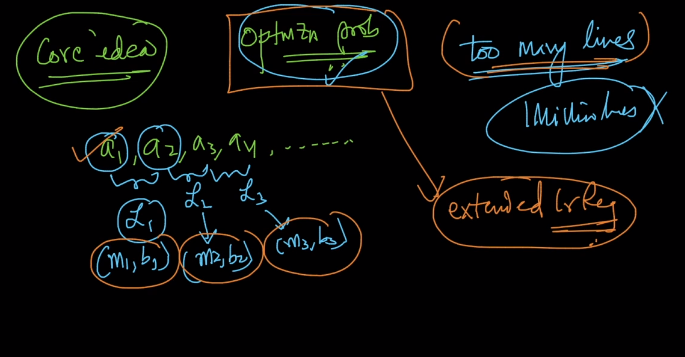 Core idea
Optmzn prob
too many lines
1 Million lines
a1, a2, a3, a4, .......
L1 L2 L3
(m1, b1) (m2, b2) (m3, b3)
extended Lr Reg